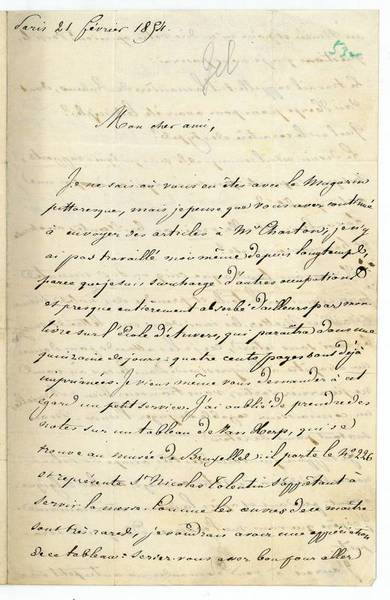 Paris 21 février 1854
53
Mon cher ami,
Je ne sais où vous en êtes avec le Magasin
pittoresque, mais je pense que vous avez continué
à envoyer des articles à Mr Charton; je n'y
ai pas travaillé moi même depuis longtemps,
parce que je suis surchargé d'autres occupations
et presque entierement absorbé d'ailleurs par mon
livre sur l'École d'Anvers, qui paraîtra dans une
quinzaine de jours: quatre cents pages sont déjà
imprimées. Je viens même vous demander à cet
égard un petit service. J'ai oublié de prendre des
notes sur un tableau de Van Herp, qui se
trouve au musée de Bruxelles: il porte le No 226
et représente St Nicolas Tolentin s'apprêtant à
servir la messe. Comme les œuvres de ce maître
sont très rares, je voudrais avoir une appréciation
de ce tableau: seriez-vous assez bon pour aller